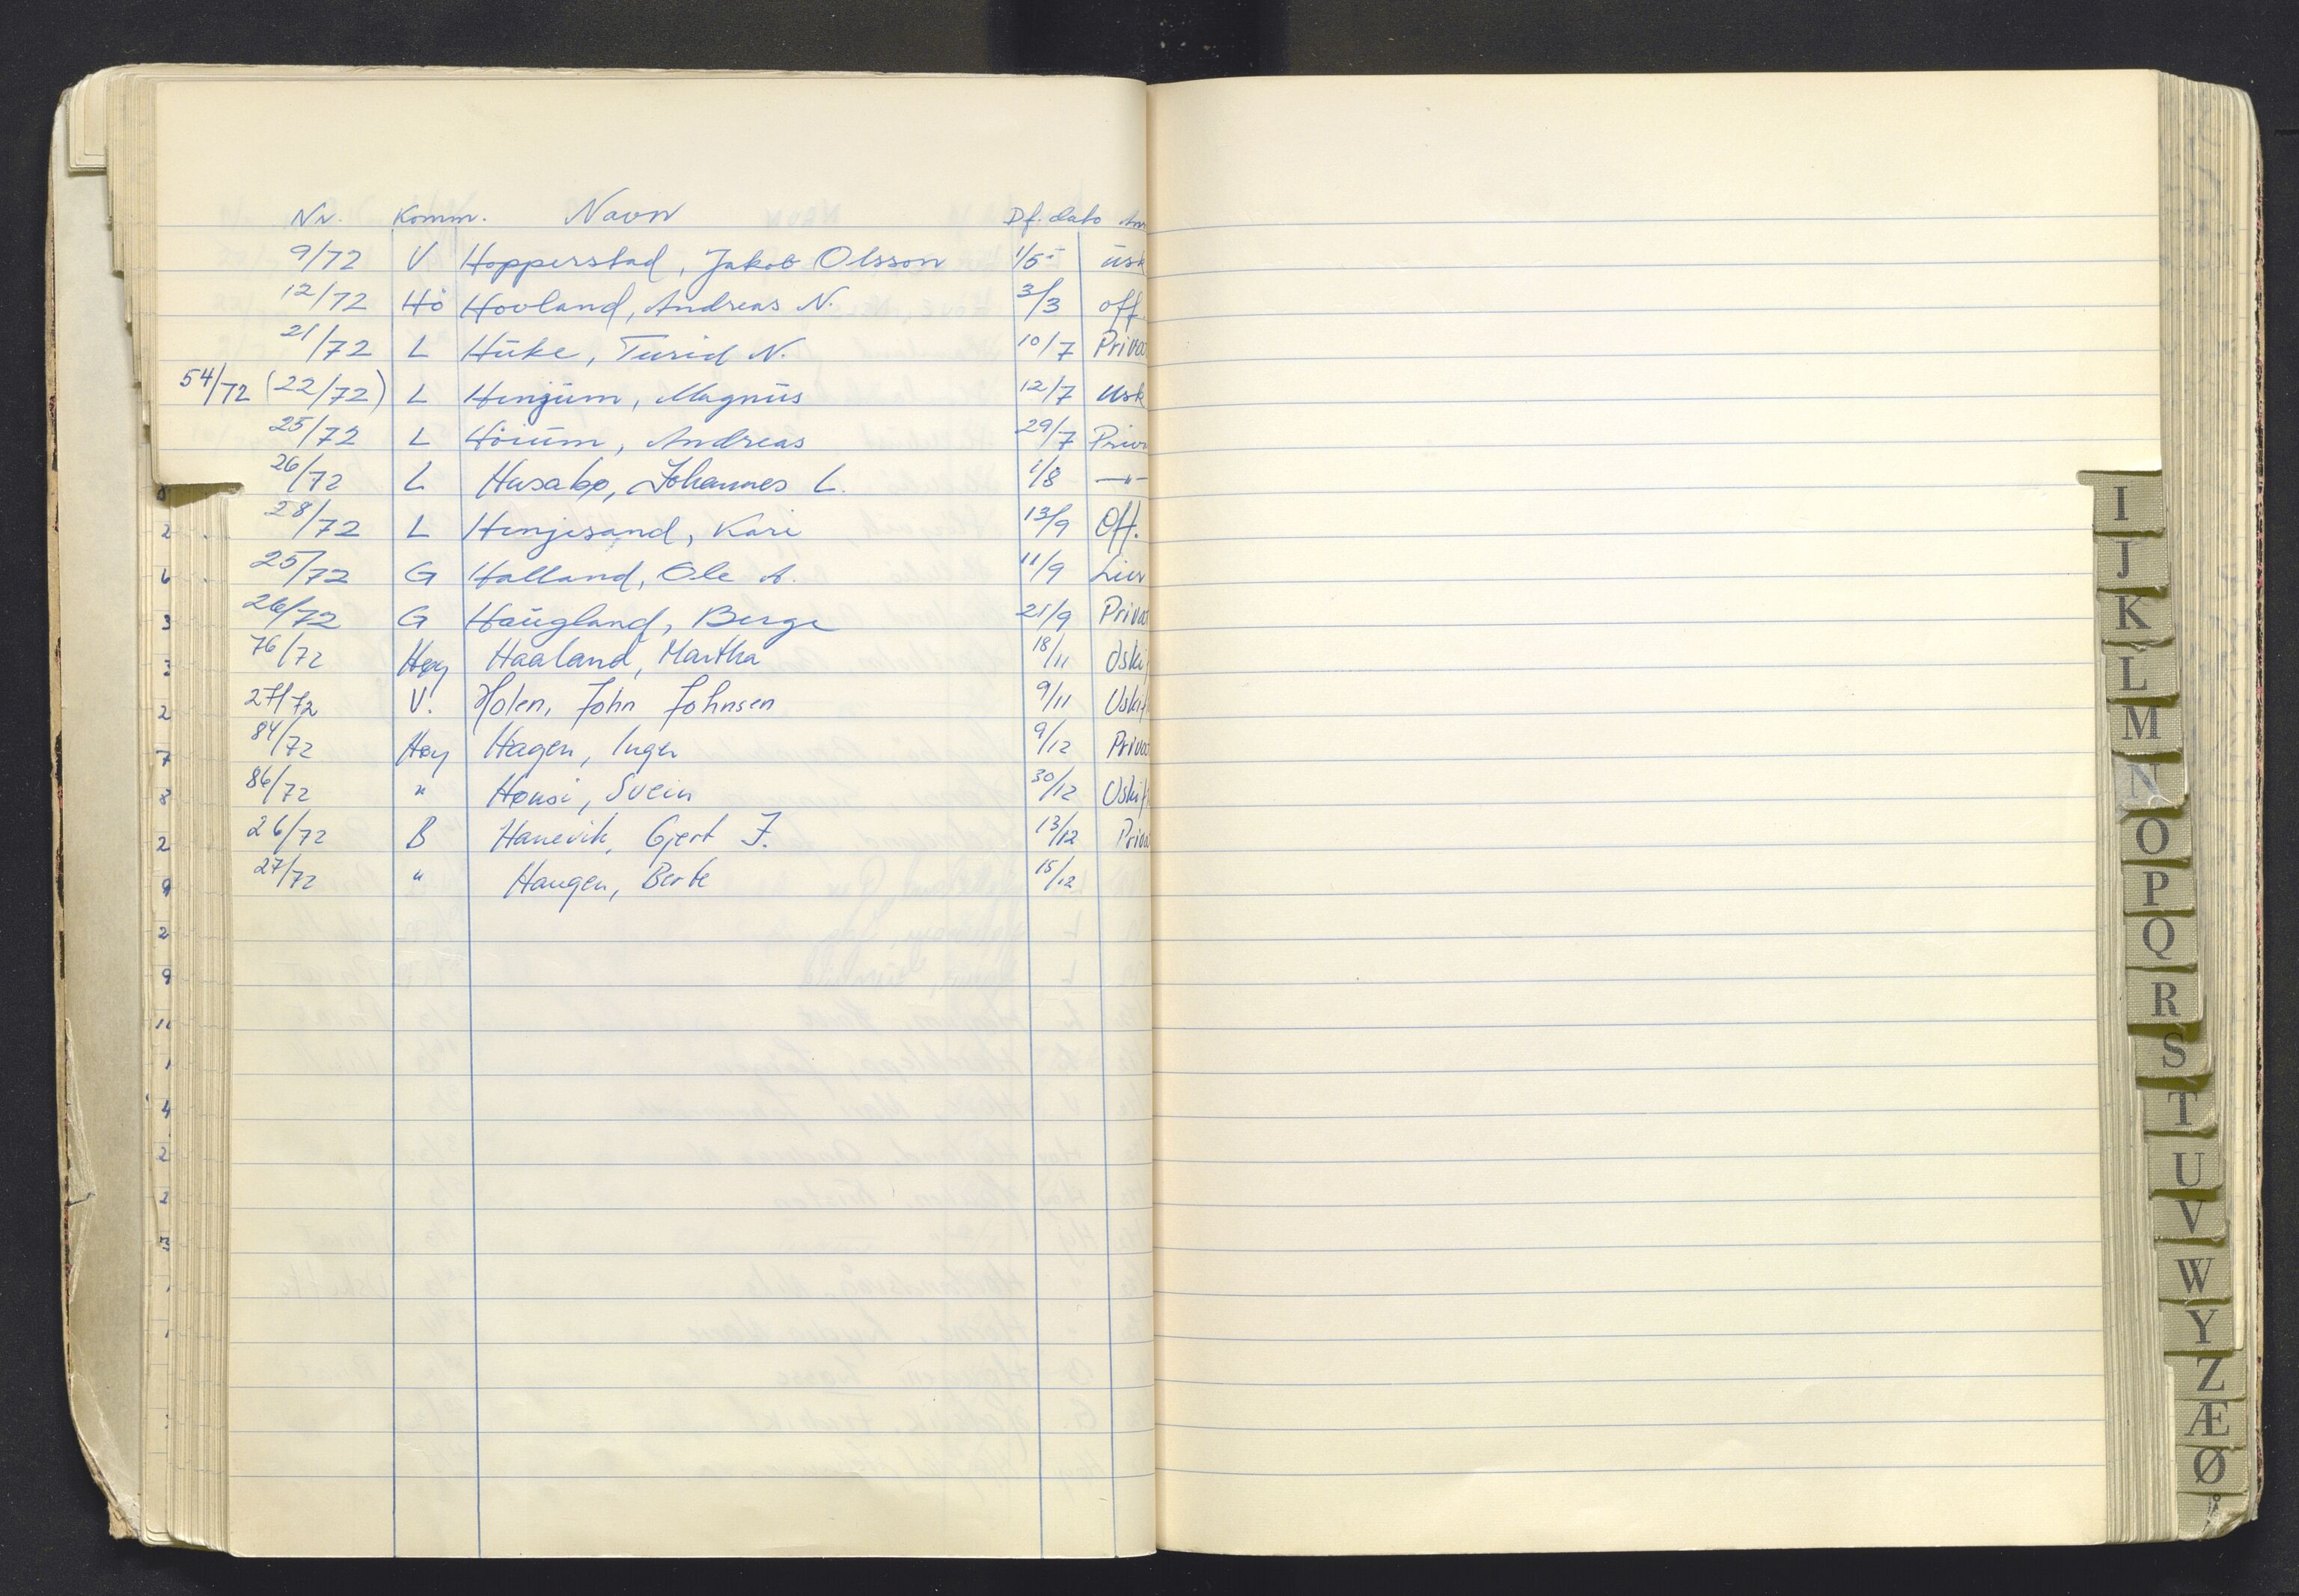 Nr. Komm. Navn Df. dato Anm
9/72 V Hopperstad, Jakob Olsson 1/5- usk
12/72 Hö Hovland, Andreas N. 3/3 off.
21/72 L Huke, Turid N. 10/7 Privat
54/72 (22/72) L Henjum, Magnus 12/7 Usk
25/72 L Höium, Andreas 29/7 Priv
26/72 L Husabø, Johannes L. 1/8 —"—
28/72 L Henjesand, Kari 13/9 Off.
25/72 G Halland, Ole A. 11/9
26/72 G Haugland, Berge 21/9 Priva
76/72 Høy Haaland, Martha 18/11 Uski
27/72 V. Holen, John Johnsen 9/11 Uskif
84/72 Høy Hagen, Inger 9/12 Priva
86/72 " Hønsi, Svein 30/12 Uskif
26/72 B Hanevik, Gjert J. 13/12 Priva
27/72 " Haugen, Berte 15/12
I
J
K
L
M
N
O
P
Q
R
S
T
U
V
W
Y
Z
Æ
Ø
Å